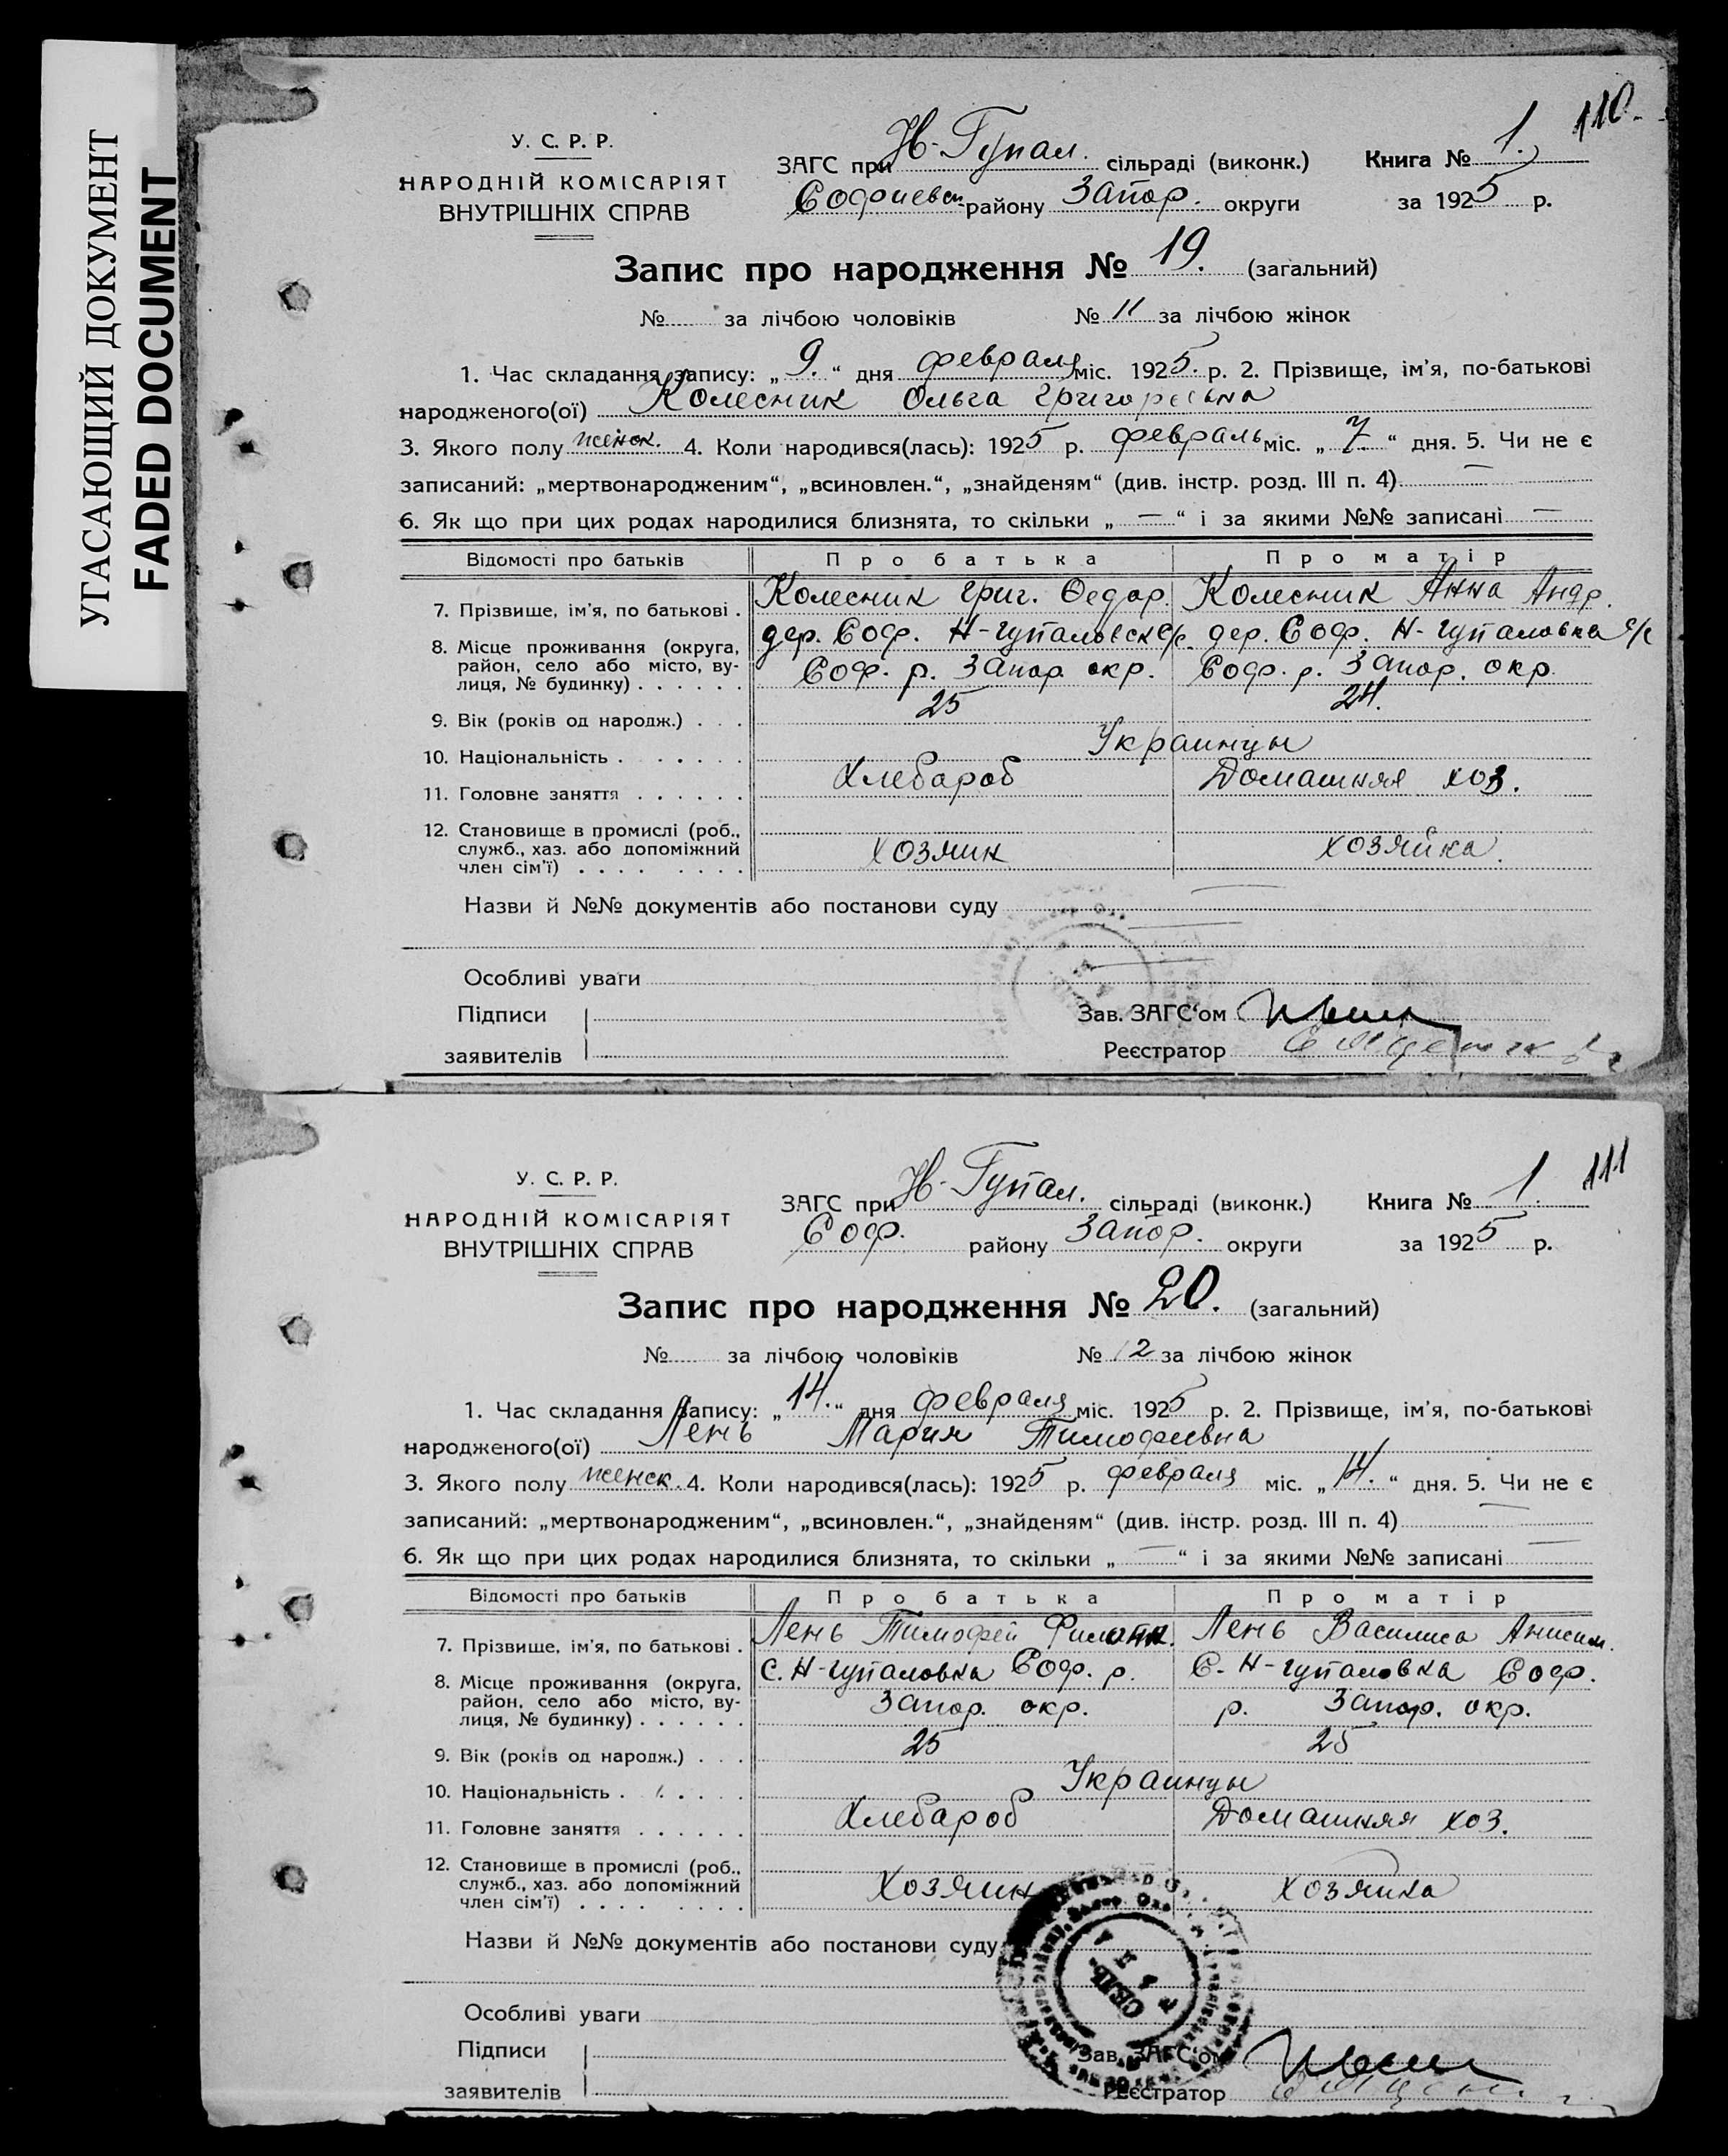 УГАСАЮЩИЙ ДОКУМЕНТ
FADED DOCUMENT
110.
У. С. Р. Р.
НАРОДНІЙ КОМІСАРІЯТ
ВНУТРІШНІХ СПРАВ
ЗАГС при Н-Гупал. сільраді (виконк.) Книга № 1.
Софиевск районy Запор. округи за 1925 р.
Запис про народження № 19. (загальний)
№ за лічбою чоловіків № 11 за лічбою жінок
1. Час складання запису: „9.“ дня февраля міс. 1925. р. 2. Прізвище, ім'я, по-батькові
народженого(ої) Колесник Ольга Григорьевна
3. Якого полу женск. 4. Коли народився(лась): 1925 р. февраль міс. „7“ дня. 5. Чи не є
записаний: „мертвонародженим“, „всиновлен.“, „знайденям“ (див. інстр. розд. III п. 4) —
6. Як що при цих родах народилися близнята, то скільки „—“ і за якими №№ записані —
Відомості про батьків Про батька Про матір
7. Прізвище, ім'я, по батькові . Колесник Григ. Федор. Колесник Анна Андр.
8. Місце проживання (округа, дер. Соф. Н-Гупаловск с/с. дер. Соф. Н-Гупаловка с/с
район, село або місто, ву- Соф. р. Запор. окр. Соф. р. Запор. окр.
лиця, № будинку) . . . . . .
9. Вік (років од народж.) . . . 25 24.
10. Національність . . . . . . Украинцы
11. Головне заняття . . . . . . Хлебароб Домашняя хоз.
12. Становище в промислі (роб.,
служб., хаз. або допоміжний хозяин хозяйка.
член сім'ї) . . . . . . . .
Назви й №№ документів або постанови суду
Особливі уваги
Підписи Зав. ЗАГС'ом
заявителів Реєстратор
111
У. С. Р. Р.
НАРОДНІЙ КОМІСАРІЯТ
ВНУТРІШНІХ СПРАВ
ЗАГС при Н-Гупал. сільраді (виконк.) Книга № 1.
Соф. району Запор. округи за 1925 р.
Запис про народження № 20. (загальний)
№ за лічбою чоловіків № 12 за лічбою жінок
1. Час складання запису: „14.“ дня февраля міс. 1925 р. 2. Прізвище, ім'я, по-батькові
народженого(ої) Лень Мария Тимофеевна
3. Якого полу женск. 4. Коли народився(лась): 1925 р. февраля міс. „14.“ дня. 5. Чи не є
записаний: „мертвонародженим“, „всиновлен.“, „знайденям“ (див. інстр. розд. III п. 4) —
6. Як що при цих родах народилися близнята, то скільки „—“ і за якими №№ записані —
Відомості про батьків Про батька Про матір
7. Прізвище, ім'я, по батькові . Лень Тимофей Лень Василиса Анисим.
8. Місце проживання (округа, С. Н-Гупаловка Соф. р. С. Н-Гупаловка Соф.
район, село або місто, ву- Запор. окр. р. Запор. окр.
лиця, № будинку) . . . . . .
9. Вік (років од народж.) . . . 25 25
10. Національність . . . . . . Украинцы
11. Головне заняття . . . . . . Хлебароб Домашняя хоз.
12. Становище в промислі (роб.,
служб., хаз. або допоміжний Хозяин хозяика
член сім'ї) . . . . . . . .
Назви й №№ документів або постанови суду
Особливі уваги
Підписи Зав. ЗАГС'ом
заявителів Реєстратор